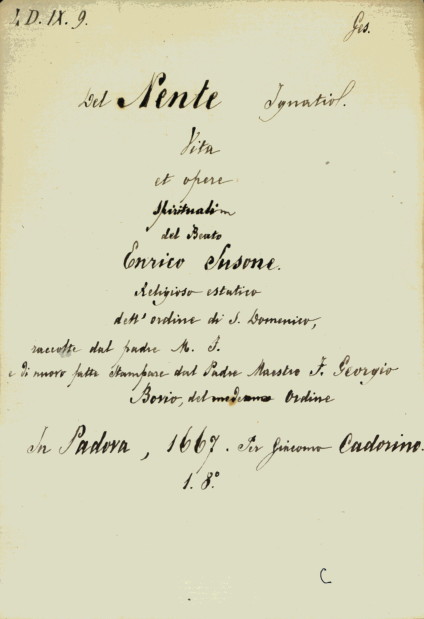 I. D. IX. 9.
Ges.
Del Nente Ignatio.
Vita
et opere
Spirituali
del Beato
Enrico Susone.
Religioso estatico
dell' ordine di S. Domenico,
raccolte dal padre M. I.
e di nuovo fatte stampare dal Padre Maestro F. Georgio
Bovio, del medesimo Ordine
In Padova, 1667. Per Giacomo Cadorino.
1. 8.°
C